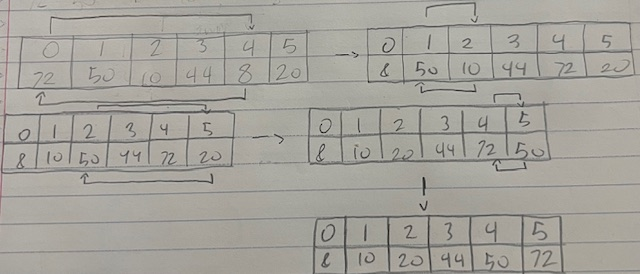 0 1 2 3 4 5
72 50 10 44 8 20
0 1 2 3 4 5
8 50 10 44 72 20
0 1 2 3 4 5
8 10 50 44 72 20
0 1 2 3 4 5
8 10 20 44 72 50
0 1 2 3 4 5
8 10 20 44 50 72